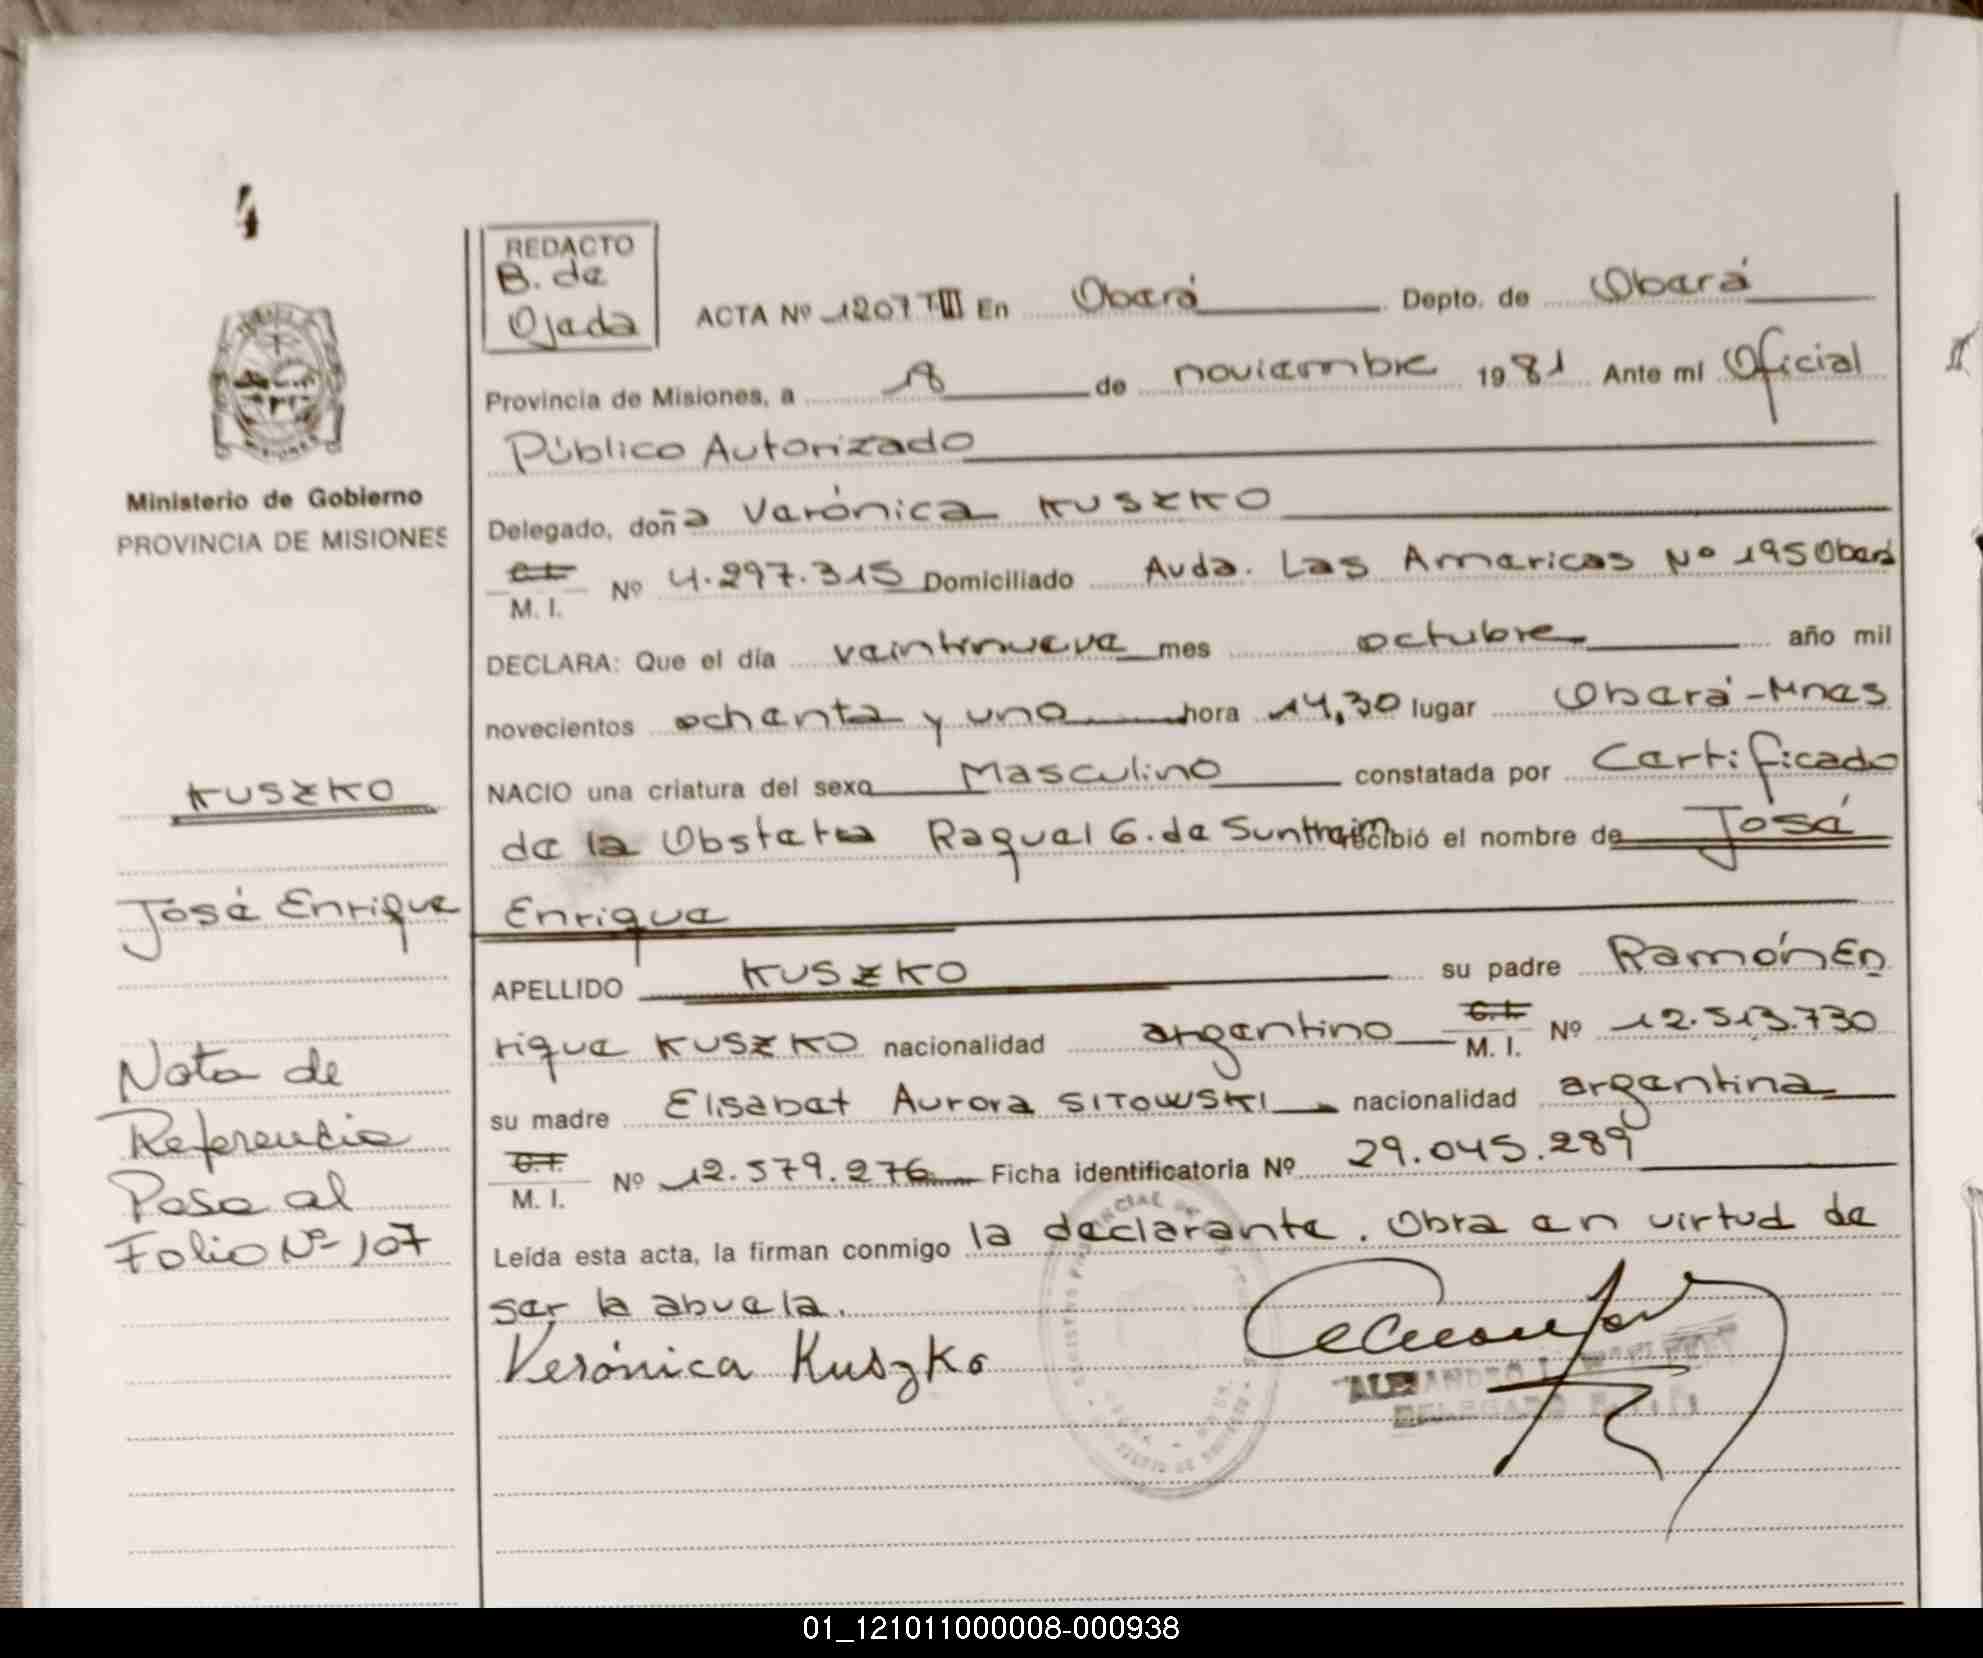 REDACTO
B. de
Ojeda
ACTA Nº 1207 TIII En Oberá Depto. de Oberá
Provincia de Misiones, a 18 de noviembre 1981 Ante mí Oficial
Público Autorizado
Ministerio de Gobierno
PROVINCIA DE MISIONES
Delegado, doña Verónica KUSZKO
C.I. M. I. Nº 4.297.315 Domiciliado Avda. Las Americas Nº 195 Oberá
DECLARA: Que el día veintinueve mes octubre año mil
novecientos ochenta y uno hora 14,30 lugar Oberá-Mnes
NACIO una criatura del sexo Masculino constatada por Certificado
de la Obstetra Raquel G. de recibió el nombre de José
Enrique
KUSZKO
José Enrique
APELLIDO KUSZKO su padre Ramón En
rique KUSZKO nacionalidad argentino C.I. M. I. Nº 12.513.730
su madre Elisabet Aurora SITOWSKI nacionalidad argentina
C.I. M. I. Nº 12.579.276 Ficha identificatoria Nº 29.045.289
Leída esta acta, la firman conmigo la declarante. Obra en virtud de
ser la abuela.
Verónica Kuszko
Nota de
Referencia
Pasa al
Folio Nº 107
ALEJANDRO
DELEGADO
01_121011000008-000938